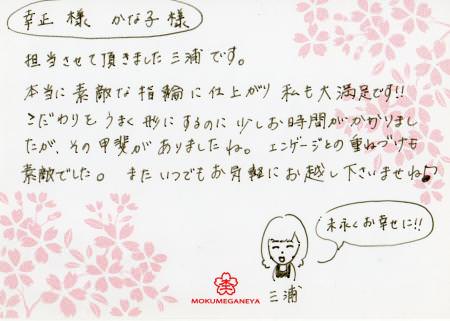 幸正 様 かな子 様
担当させて頂きました 三浦です。
本当に 素敵な 指輪に 仕上がり 私も大満足です!!
こだわりを うまく 形に するのに 少しお時間がかかりまし
たが、その甲斐が ありましたね。エンゲージとの重ねづけも
素敵でした。 また いつでも お気軽に お越し下さいませね♪
末永くお幸せに!!
三浦
MOKUMEGANEYA